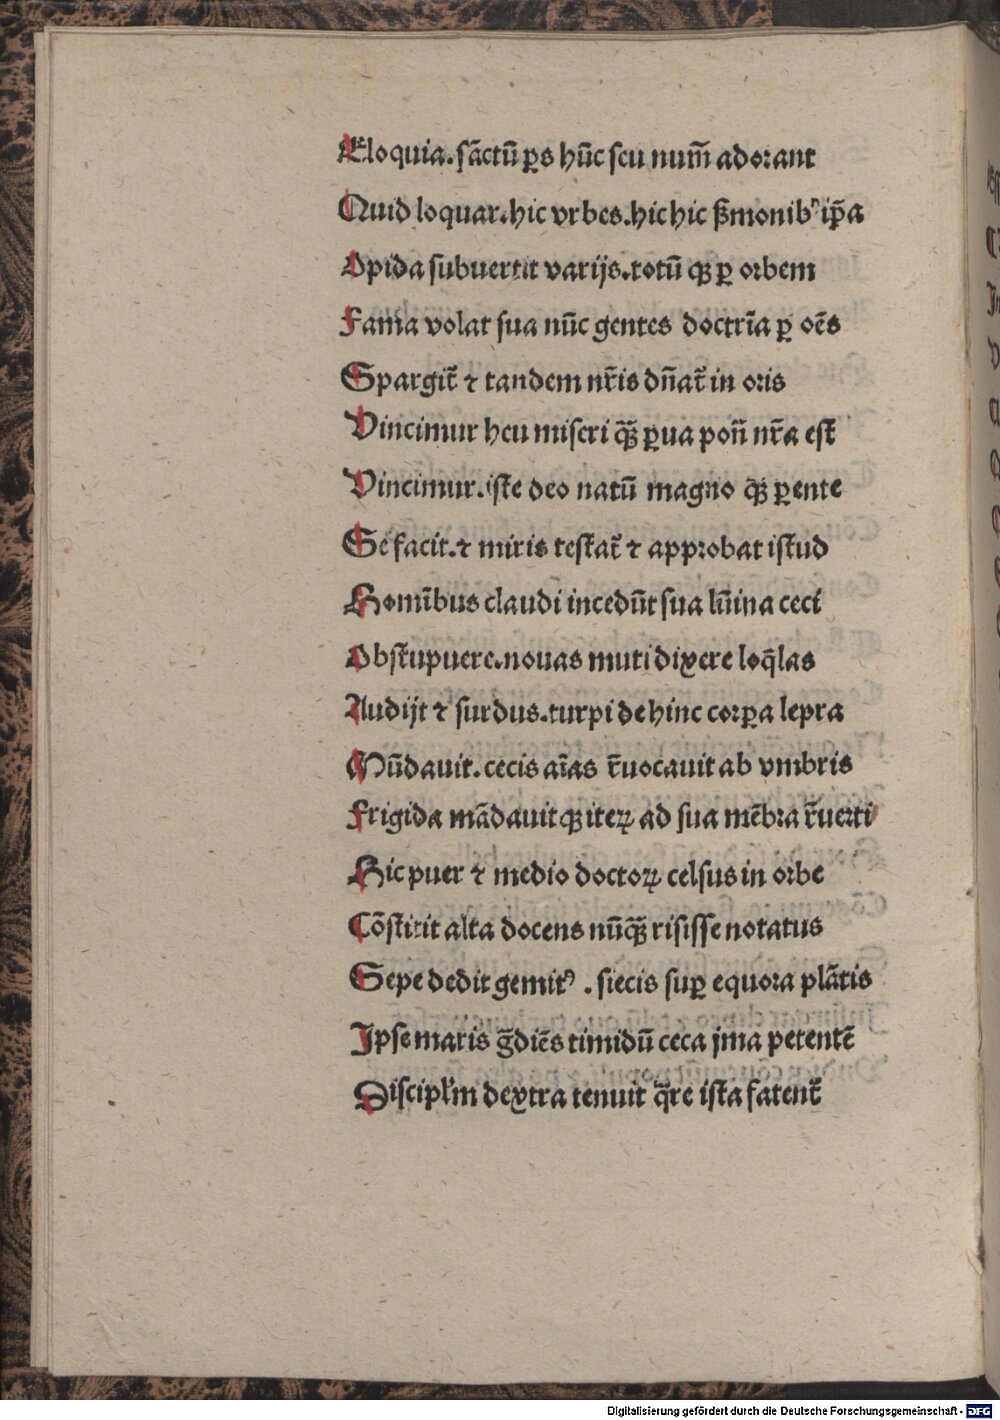 Eloquia. sāctū ꝑs hūc seu num̄ adorant
Quid loquar. hic vrbes. hic hic ẞmonibꝰ ip̄a
Opida subuertit varijs. totū qꝫ ꝑ orbem
Fama volat sua nūc gentes doctrīa ꝑ oēs
Spargit̄ ⁊ tandem nr̄is dn̄at̄ in oris
Vincimur heu miseri qꝫ̄ ꝑua pon̄ nr̄a est̄
Vincimur. iste deo natū magno qꝫ̄ ꝑente
Se facit. ⁊ miris testat̄ ⁊ approbat istud
Homīibus claudi incedūt sua lūina ceci
Obstupuere. nouas muti dixere loq̄las
Audijt ⁊ surdus. turpi dehinc corꝑa lepra
Mūdauit. cecis aīas r̄uocauit ab vmbris
Frigida mādauit qꝫ iteꝝ ad sua mēbra r̄uerti
Hic puer ⁊ medio doctoꝝ celsus in orbe
Cōstitit alta docens nūqꝫ̄ risisse notatus
Sepe dedit gemitꝰ. siccis suꝑ equora plātis
Ipse maris g̅diēs timidū ceca jma petentē
Discipl̄m dextra tenuit q̄re ista fatent̄
Digitalisierung gefördert durch die Deutsche Forschungsgemeinschaft - DFG